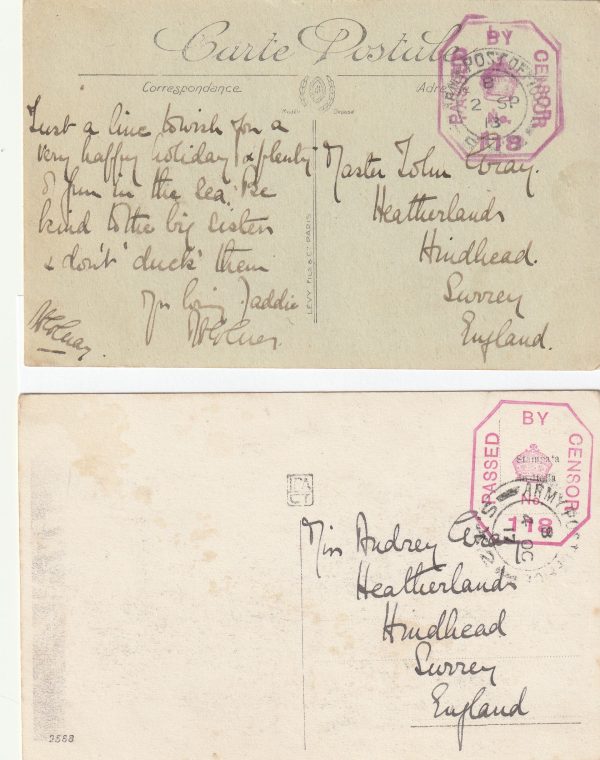 Carte Postale
Correspondance
Adresse
Modèle Déposé
PASSED BY CENSOR
No.
118
ARMY POST OFFICE
B
2 SP
Just a line to wish you a
very happy holiday & plenty
of fun in the sea. Be
kind to the big sisters
& don't "duck" them
Yr loving Daddie
LEVY FILS & Cie PARIS
Master John Gray.
Heatherlands
Hindhead.
Surrey
England.
PASSED BY CENSOR
Stampata
in Italia
No.
118
ARMY POST OFFICE
4 OC
17
Miss Audrey Gray
Heatherlands
Hindhead
Surrey
England
2568